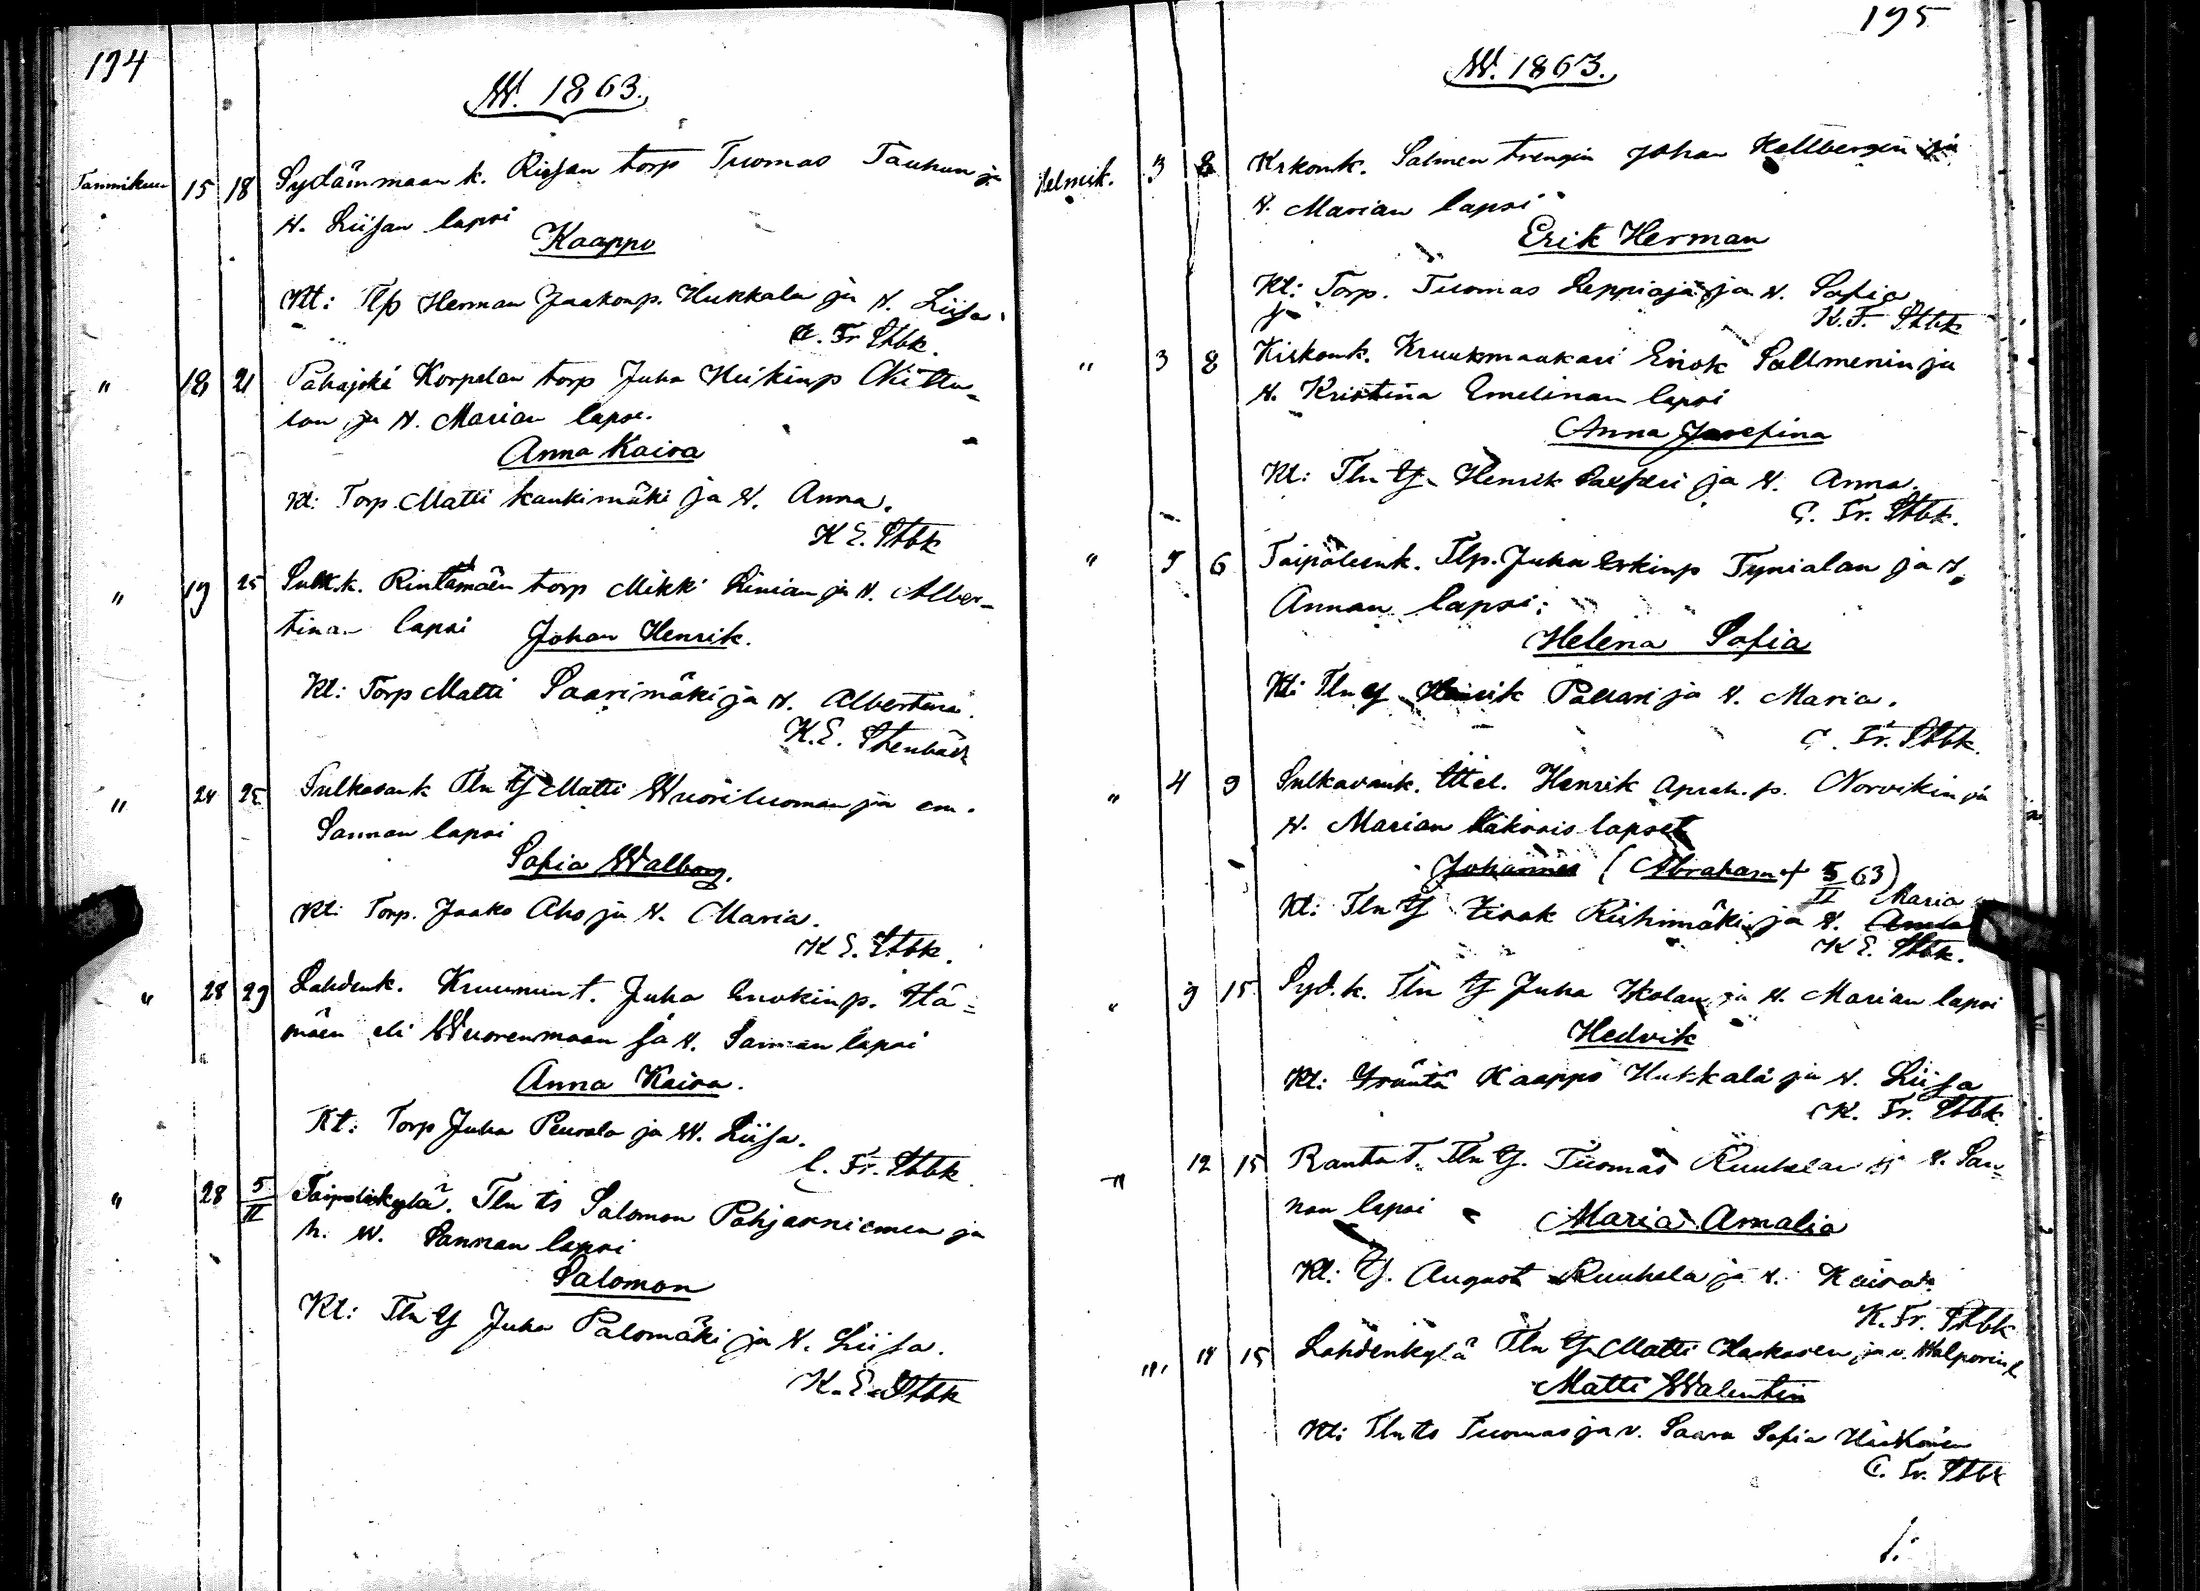 194
W. 1863.
Tammikuu 15 18 Sydänmaan k. Rissan torp Tuomas Tauhun ja
W. Liisan lapsi
Kaappo
Kt: Tlp Herman Jaakonp. Hukkala ja W. Liisa.
K. Fr Stbk.
" 18 21 Pahajoki Korpelan torp Juha Heikinp
ja W. Marian laps.
Anna Kaisa
Kt: Torp. Matti kaukimäki ja W. Anna.
K E. Stbk
" 19 25 Sulk.k. Rintamäen torp Mikki ja W. Alber-
tinan lapsi Johan Henrik.
Kt: Torp Matti Saarimäki ja W. Albertina.
K. E. Stenbäck
" 24 25 Sulkavank Tln Y Matti Wuoriluoman ja em.
Sannan lapsi
Sofia Walborg.
Kt: Torp. Jaako Aho ja W. Maria.
K E. Stbk.
" 28 29 Lahdenk. Kruunun t. Juha Enokinp. Itä-
mäen eli Wuorenmaan ja W. Sannan lapsi
Anna Kaisa.
Kt: Torp Juha Peurala ja W. Liisa.
C. Fr. Stbk.
" 28 5/II Taipaleskylä. Tln ts Salomon Pohjasniemen ja
h. W. Sannan lapsi
Salomon
Kt: Tln Y Juha Palomäki ja W. Liisa.
K. E. Stbk
195
W. 1863.
Helmik. 3 8 Krkonk. Salmen trengin Johan Kellbergin ja
W. Marian lapsi
Erik Herman
Kt: Torp. Tuomas Leppiaja ja W. Sofia
K. F. Stbk
" 3 8 Kirkonk. Kruukmaakari Enok Sallmenin ja
W. Kristina Emelinan lapsi
Anna Josefina
Kt: Tln Y. Henrik ja W. Anna.
C. Fr. Stbk.
" 5 6 Taipaleenk. Tlp. Juha Erkinp Tynialan ja W.
Annan lapsi:
Helena Sofia
Kt: Tln Y Henrik Pallari ja W. Maria.
C. Fr. Stbk.
" 4 9 Sulkavank. Ittel. Henrik Aprah. p. Norvikin ja
W. Marian kaksois lapset
Johannes (Abraham + 5/II 63)
Maria
Kt: Tln Y Iisak Riihimäki ja W.
K E. Stbk.
" 9 15 Syd. k. Tln Y Juha Iskolan ja W. Marian lapsi
Hedvik
Kt: Isäntä Kaappo Hukkala ja W. Liisa
K. Fr. Stbk.
" 12 15 Rantat. Tln Y. Tuomas Ruuhelan ja W. San-
nan lapsi
Maria Amalia
Kt: Y. August Ruuhela ja W. Kaisa.
K. Fr. Stbk
" 14 15 Lahdenkylä Tln Y Matti Haskosen ja v. Walporin l
Matti Walentin
Kt: Tln ts Tuomas ja v. Saara Sofia
C. Fr. Stbk